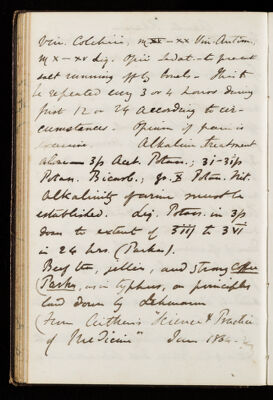 Vin. Colchici, m xv – xx Vin. Antim.,
m x – xv Liq. Opii Sedat. – to prevent
salt running off by bowels. This to
be repeated every 3 or 4 hours during
first 12 or 24 according to cir-
cumstances. Opium if pain is
Alkaline treatment
alone – ʒss Acet. Potass.; ʒi – ʒiss
Potass. Bicarb.; gr. X Potass. Nit.
Alkalinity of urine must be
established. Liq. Potass. in ʒss
doses to extent of ʒiii to ʒvi
in 24 hrs. (Parkes).
Beef tea, jellies, and strong Coffee
(Parkes), as in typhus, on principles
laid down by Lehmann
(From Aitken's "Science & Practice
of Medicine" Jan 1864